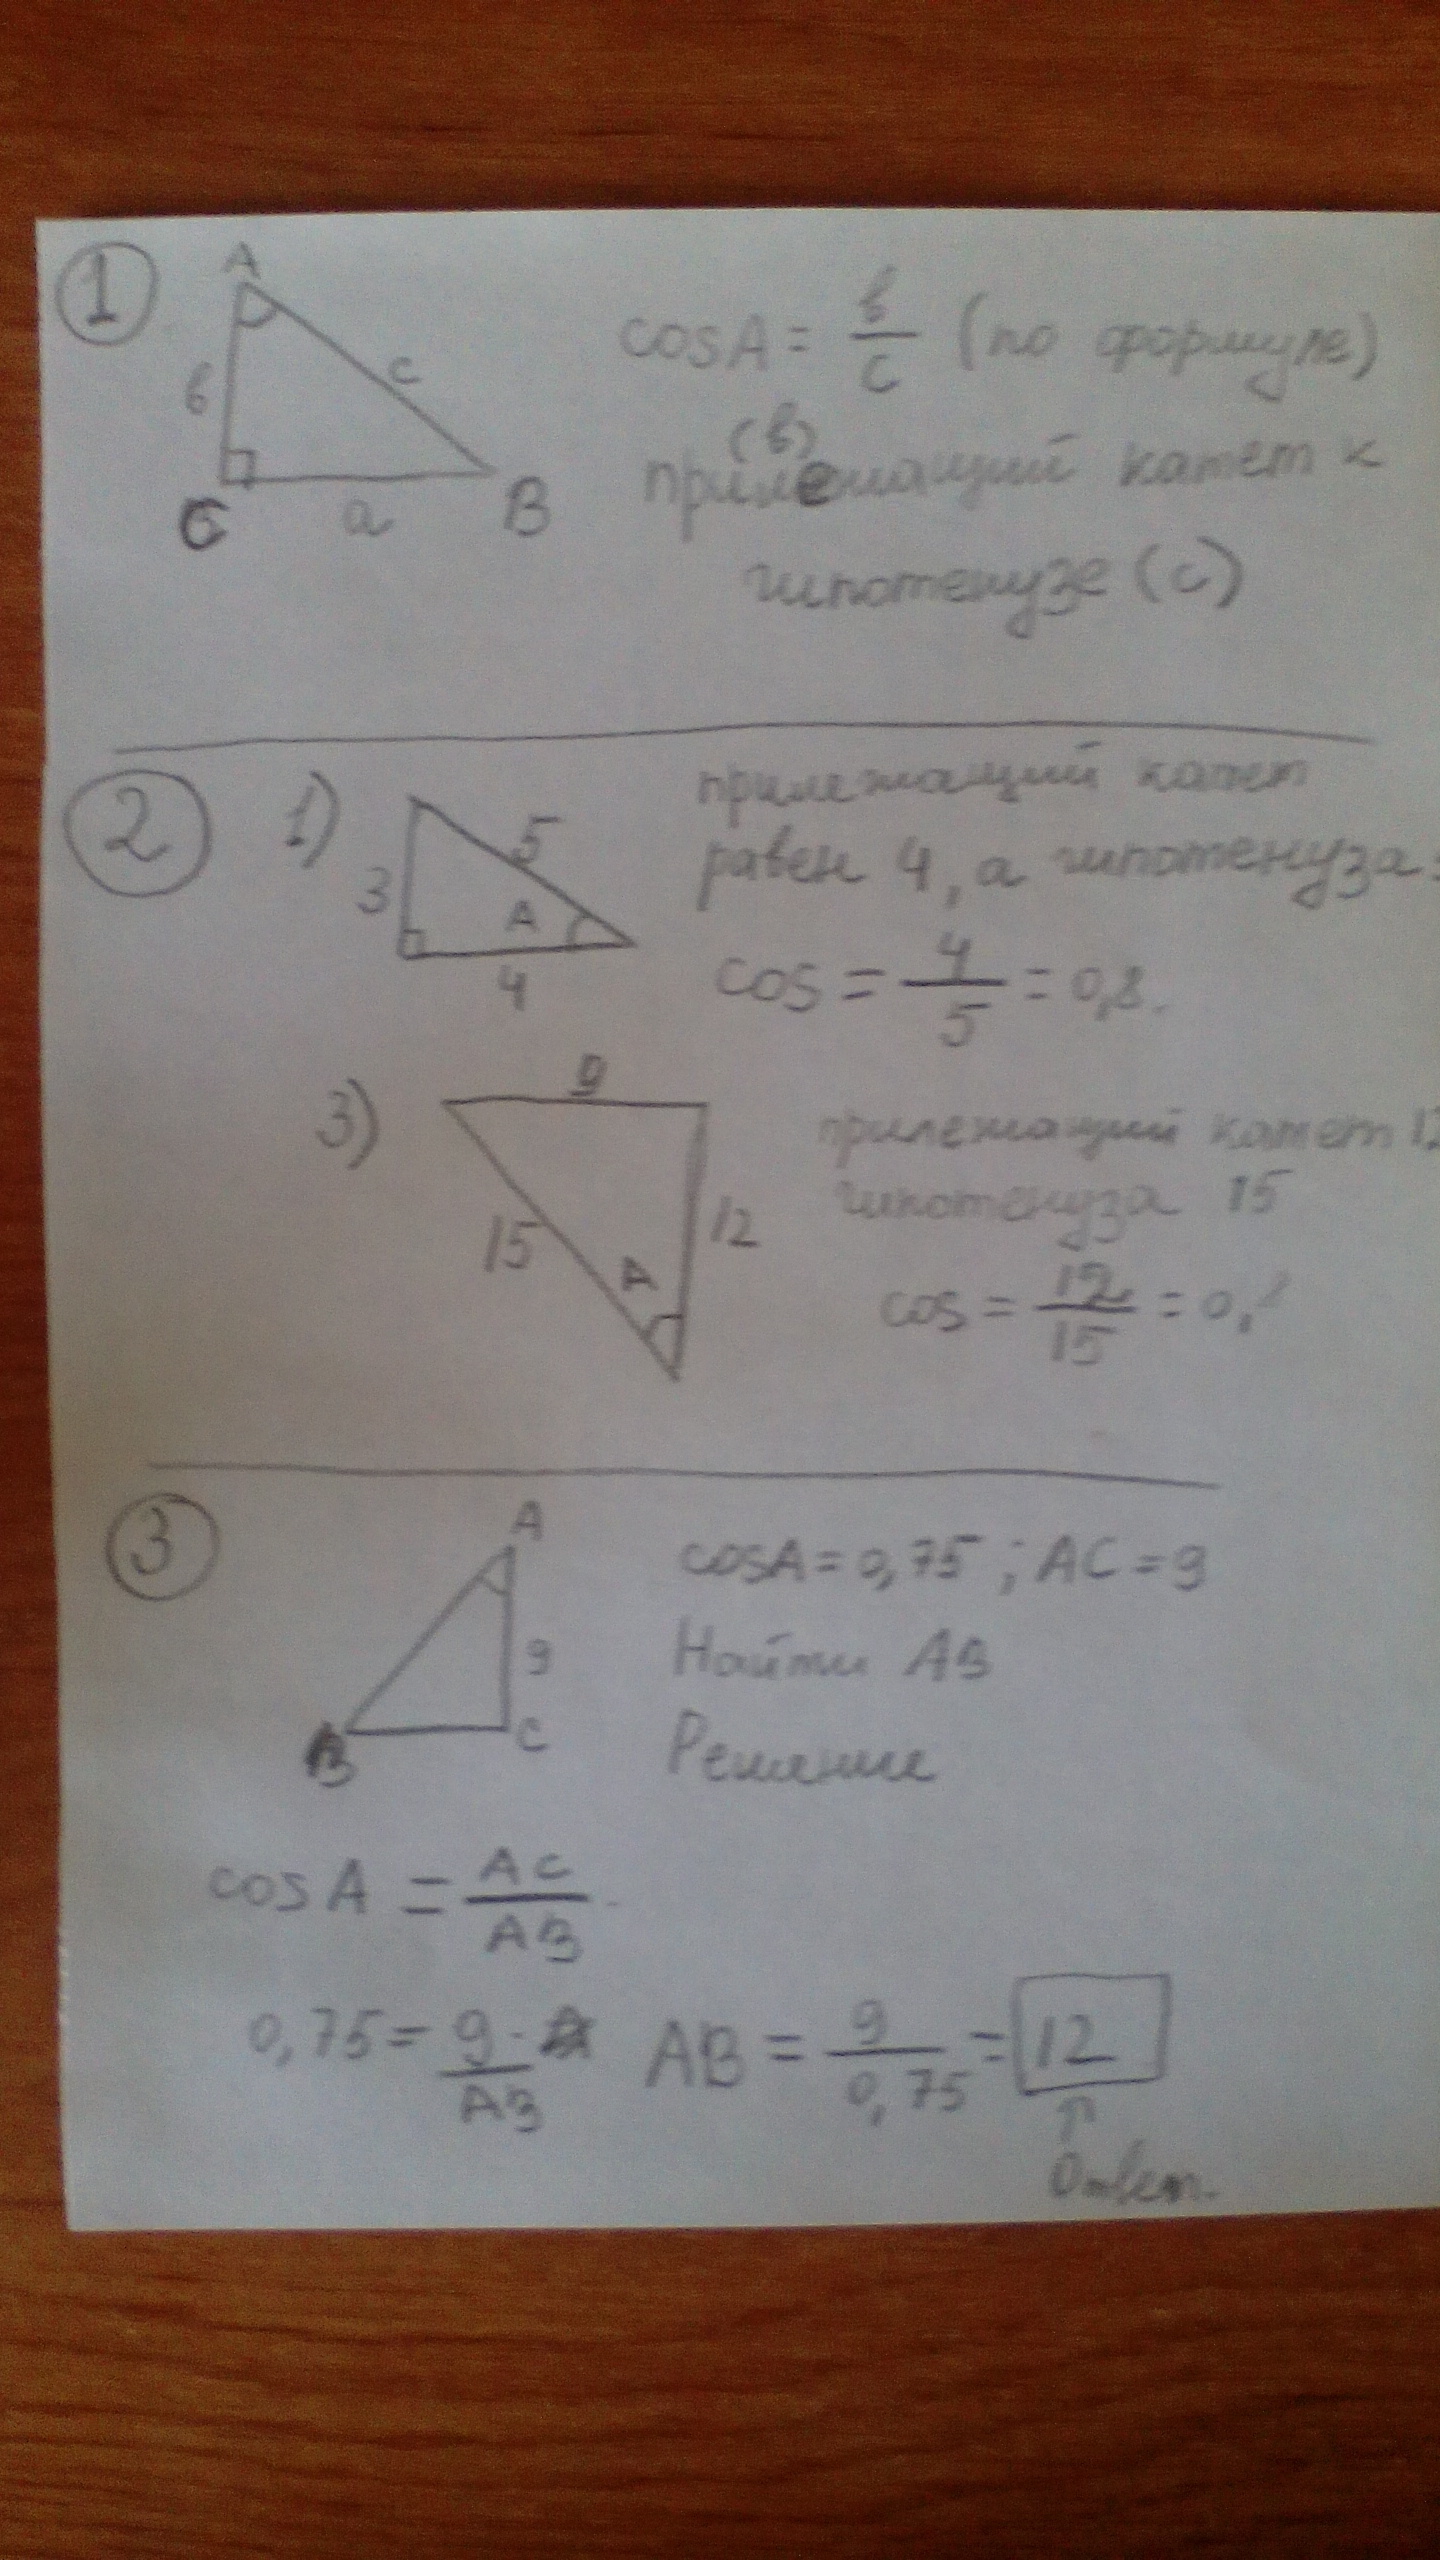 1
A
b
c
C
a
B
cosA = b/c (по формуле)
(b)
прилежащий катет к
гипотенузе (c)
2
1)
5
3
A
4
прилежащий катет
равен 4, а гипотенуза
cos = 4/5 = 0,8.
3)
9
15
12
A
прилежащий катет 12
гипотенуза 15
cos = 12/15 = 0,
3
A
9
B
C
cosA = 0,75 ; AC = 9
Найти AB
Решение
cos A = AC/AB
0,75 = 9/AB AB = 9/0,75 = 12
↑
Ответ.